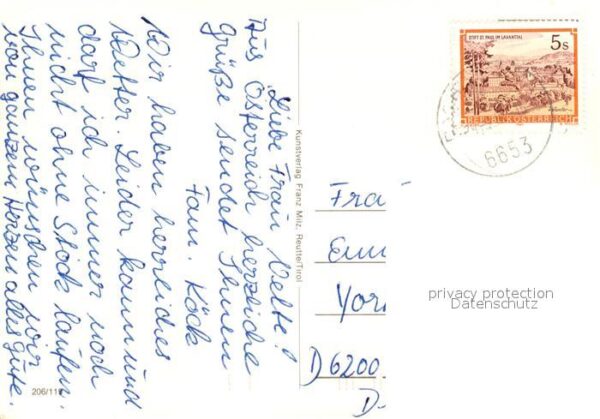 Liebe Frau Velte!
Aus Österreich herzliche
Grüße sendet Ihnen
Fam. Köck
Wir haben herrliches
Wetter. Leider kann und
darf ich immer noch
nicht ohne Stock laufen.
Ihnen wünschen wir
von ganzem Herzen alles Gute.
206/11
Kunstverlag Franz Milz, Reutte/Tirol
STIFT ST. PAUL IM LAVANTTAL
5s
REPUBLIK ÖSTERREICH
6653
Fra
Em
Yor
D 6200
D-
privacy protection
Datenschutz